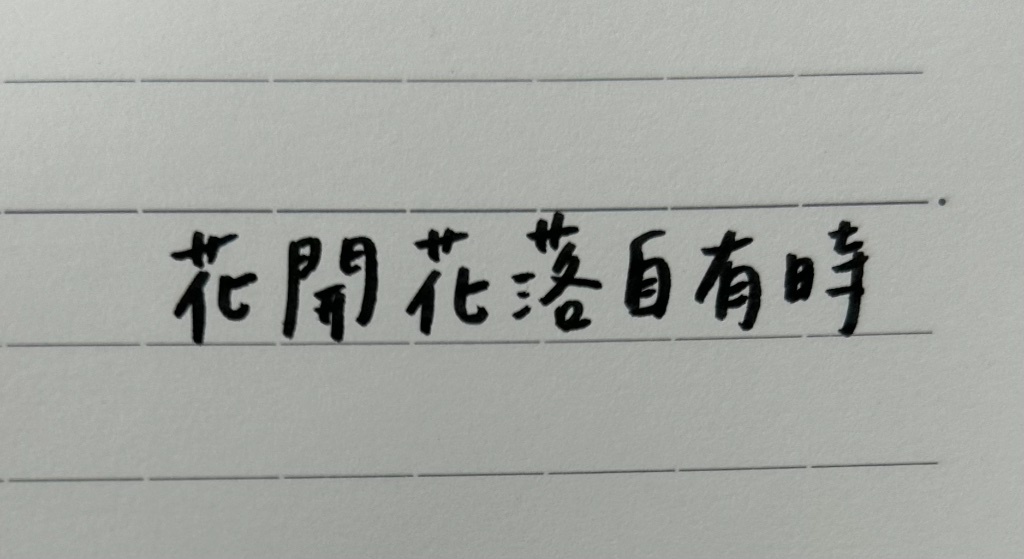 花開花落自有時